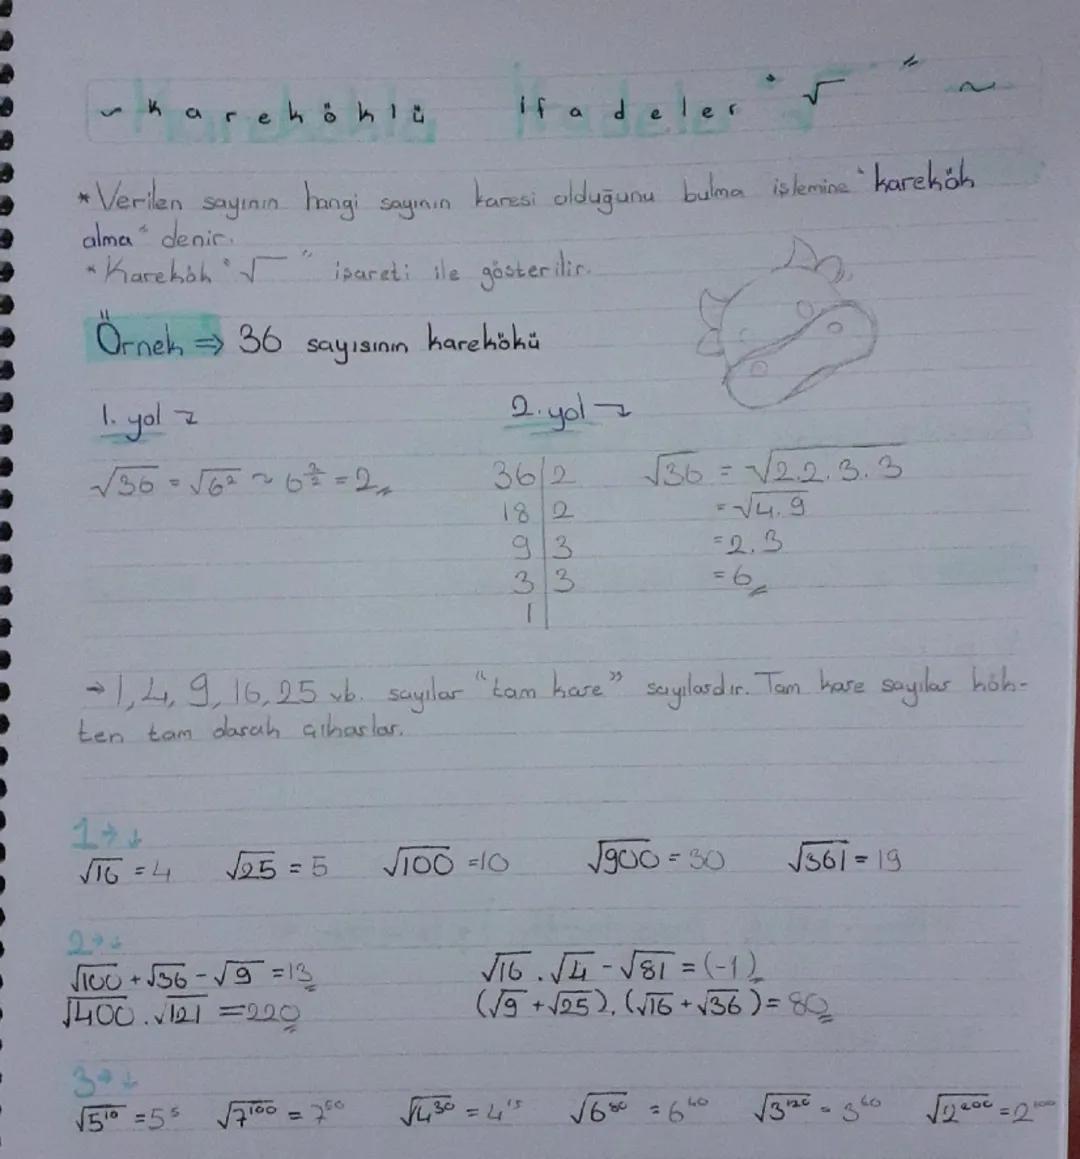 ~ Kareköklü İfadeler "√" ~
* Verilen sayının hangi sayının karesi olduğunu bulma işlemine "karekök
alma" denir.
* Karekök "√" işareti ile gösterilir.
Örnek ⇒ 36 sayısının karekökü
1. yol ↴ 2. yol ↴
√36 = √6² ~ 6^(2/2) = 2
36 | 2 √36 = √2.2.3.3
18 | 2 = √4.9
9 | 3 = 2.3
3 | 3 = 6
1 |
→ 1, 4, 9, 16, 25 vb. sayılar "tam kare" sayılardır. Tam kare sayılar kök-
ten tam olarak çıkarlar.
1→↓
√16 = 4 √25 = 5 √100 = 10 √900 = 30 √361 = 19
2→↓
√100 + √36 - √9 = 13 √16 . √4 - √81 = (-1)
√400 . √121 = 220 (√9 + √25) . (√16 + √36) = 80
3→↓
√5¹⁰ = 5⁵ √7¹⁰⁰ = 7⁵⁰ √4³⁰ = 4¹⁵ √6⁸⁰ = 6⁴⁰ √3¹²⁰ = 3⁶⁰ √2²⁰⁰ = 2¹⁰⁰